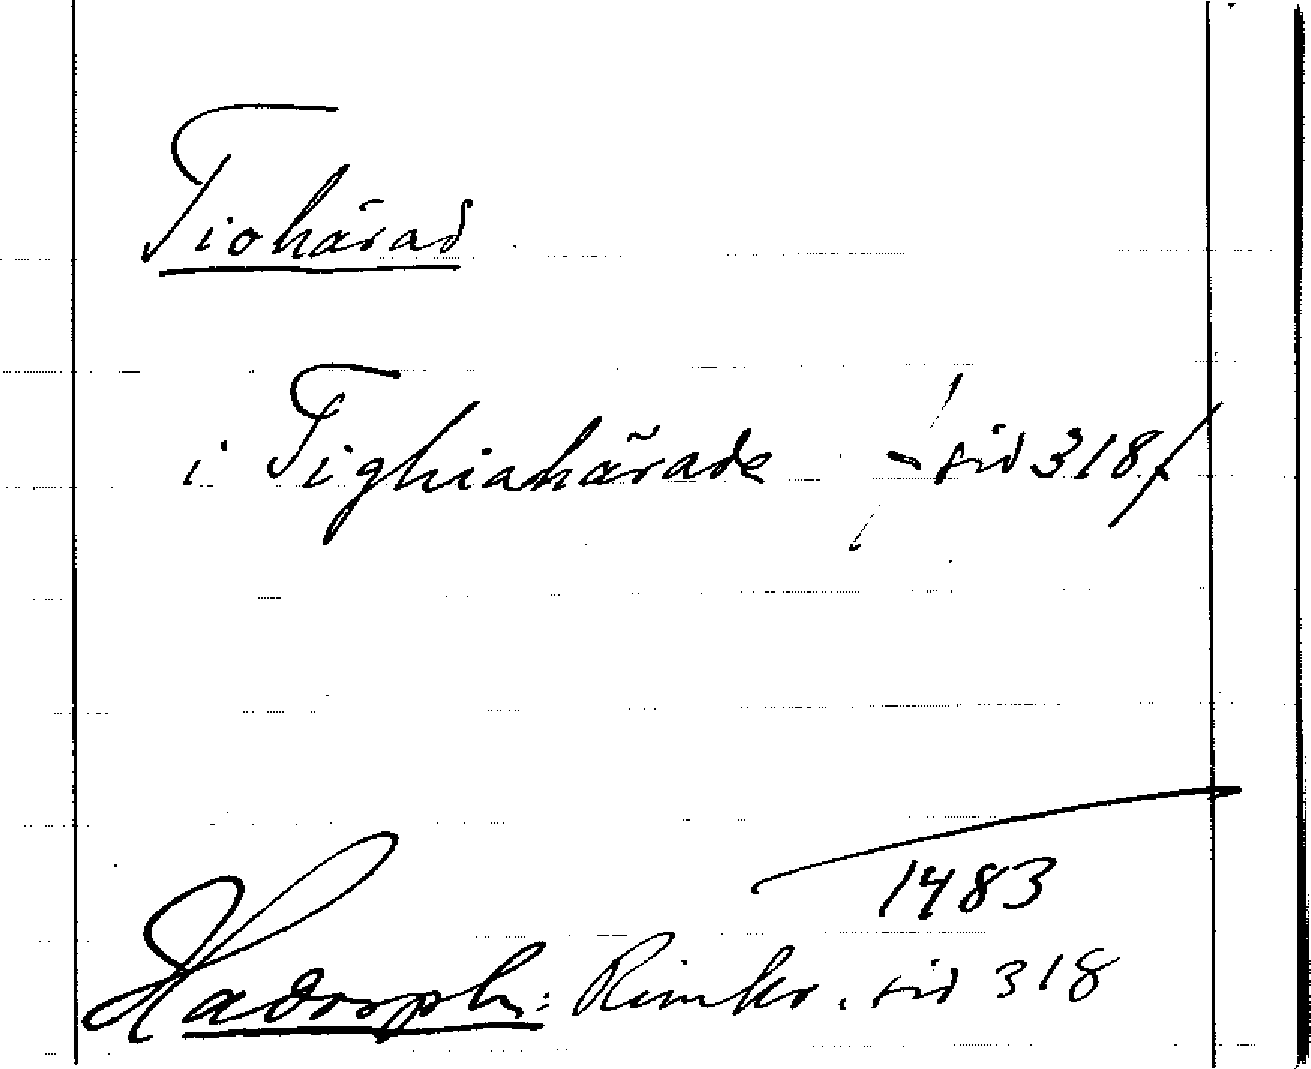 Tiohärad
i Tighiahärade /- sid 318/
1483
Hadorph: Rimkr. sid 318